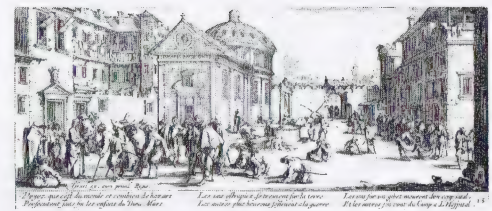 Israel ex. cum priuil. Reg.
Voyez que c'est du monde et combien de hazars
Persecutent sans fin les enfans du Dieu Mars
Les uns estropiez se traisnent sur la terre
Les autres plus heureux s'esleuent a la guerre
Les uns sur un gibet meurent d'un coup fatal
Et les autres s'en vont du Camp a L'Hospital.
15